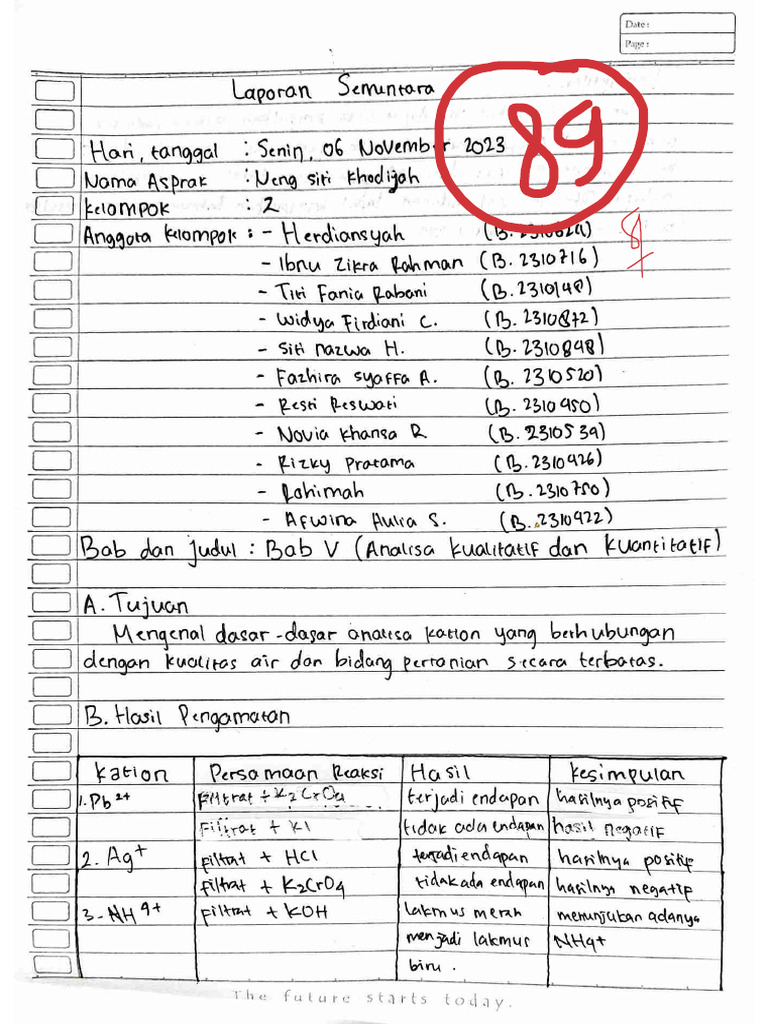 Date :
Page :
Laporan Sementara
89
Hari, tanggal : Senin, 06 November 2023
Nama Asprak : Neng siti khodijah
Kelompok : 2
Anggota kelompok : - Herdiansyah (B. 2310624)
- Ibnu Zikra Rahman (B. 2310716)
- Titi Fania Rabani (B. 2310148)
- Widya Firdiani C. (B. 2310872)
- Siti nazwa H. (B. 2310848)
- Fazhira syaffa A. (B. 2310520)
- Resti Reswati (B. 2310450)
- Novia Khansa R (B. 2310539)
- Rizky Pratama (B. 2310426)
- Rahimah (B. 2310750)
- Afwina Aulia S. (B. 2310422)
Bab dan judul : Bab V (Analisa kualitatif dan kuantitatif)
A. Tujuan
Mengenal dasar-dasar analisa kation yang berhubungan
dengan kualitas air dan bidang pertanian secara terbatas.
B. Hasil Pengamatan
Kation Persamaan Reaksi Hasil Kesimpulan
1. Pb2+ Filtrat + K2CrO4 terjadi endapan hasilnya positif
Filtrat + KI tidak ada endapan hasil negatif
2. Ag+ filtrat + HCl terjadi endapan hasilnya positif
filtrat + K2CrO4 tidak ada endapan hasilnya negatif
3. NH4+ filtrat + KOH lakmus merah menunjukan adanya
menjadi lakmus NH4+
biru.
The future starts today.